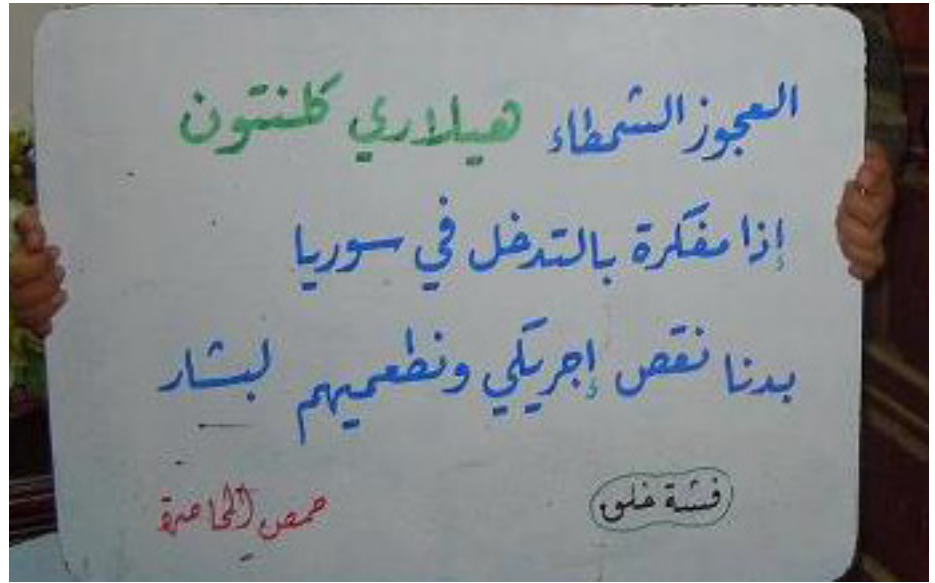 العجوز الشمطاء هيلاري كلنتون
إذا مفكرة بالتدخل في سوريا
بدنا نقص إجريكي ونطعميهم لبشار
فشة خلق
حمص المحاصرة